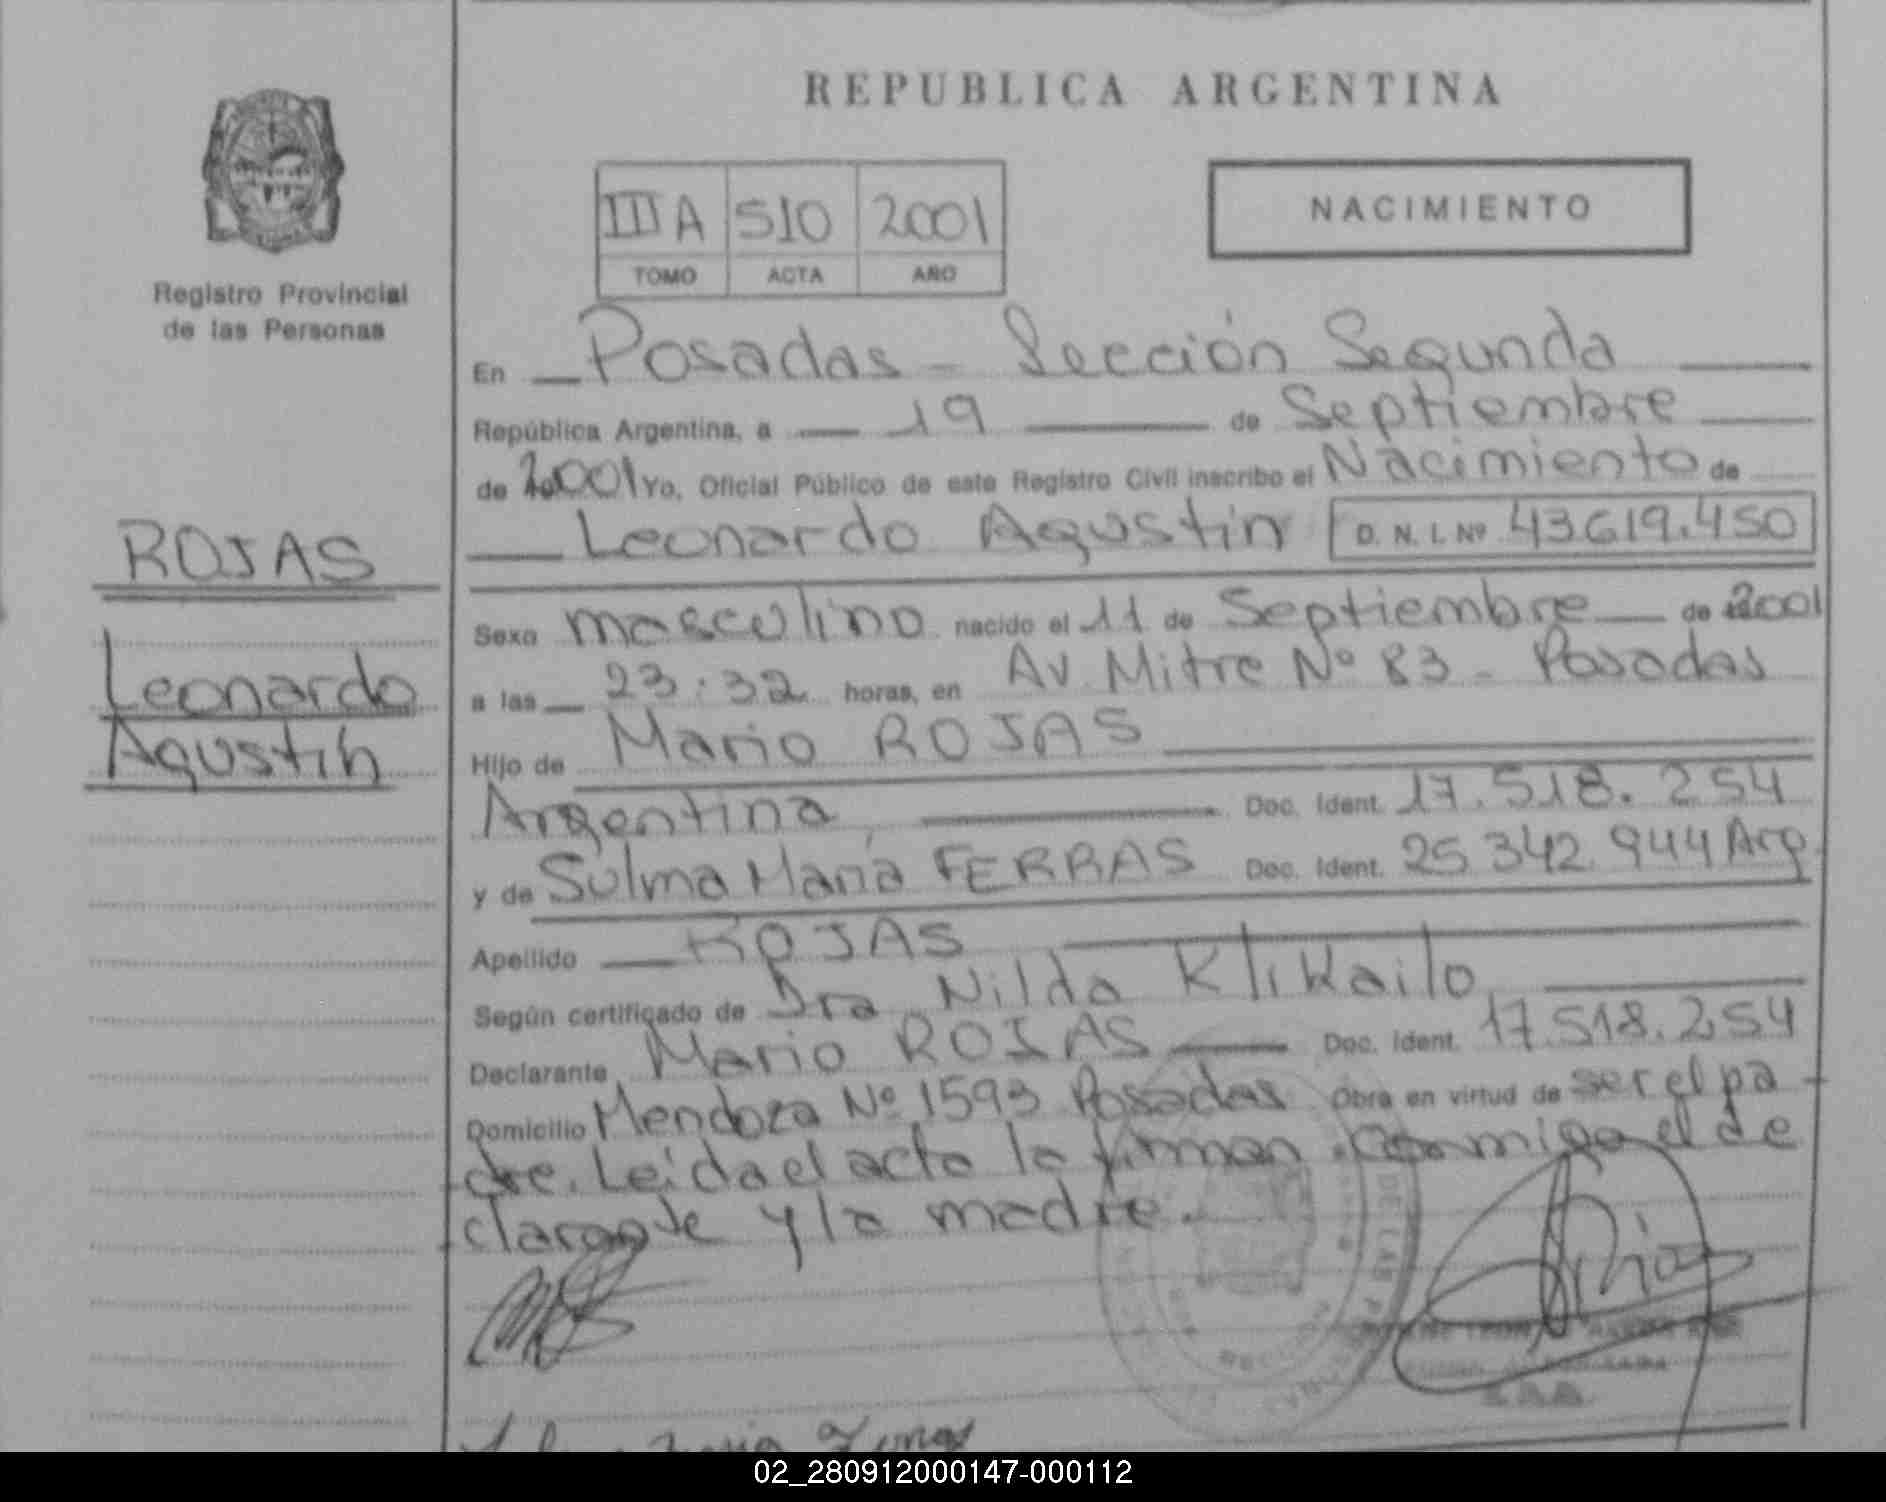 REPUBLICA ARGENTINA
III A 510 2001
TOMO ACTA AÑO
NACIMIENTO
Registro Provincial
de las Personas
ROJAS
Leonardo
Agustín
En Posadas - Sección Segunda
República Argentina, a 19 de Septiembre
de 2001 Yo, Oficial Público de este Registro Civil inscribo el Nacimiento de
Leonardo Agustín D. N. I. Nº 43.619.450
Sexo masculino nacido el 11 de Septiembre de 2001
a las 23:32 horas, en Av Mitre Nº 83 - Posadas
Hijo de Mario ROJAS
Argentina Doc. Ident. 17.518.254
y de Sulma María FERRAS Doc. Ident. 25 342 944 Arg
Apellido ROJAS
Según certificado de Dra Nilda Klikailo
Declarante Mario ROJAS Doc. Ident. 17.518.254
Domicilio Mendoza Nº 1593 Posadas Obra en virtud de ser el pa
dre. Leída el acta la firman conmigo el de
clarante y la madre.
DE LAS
02_280912000147-000112